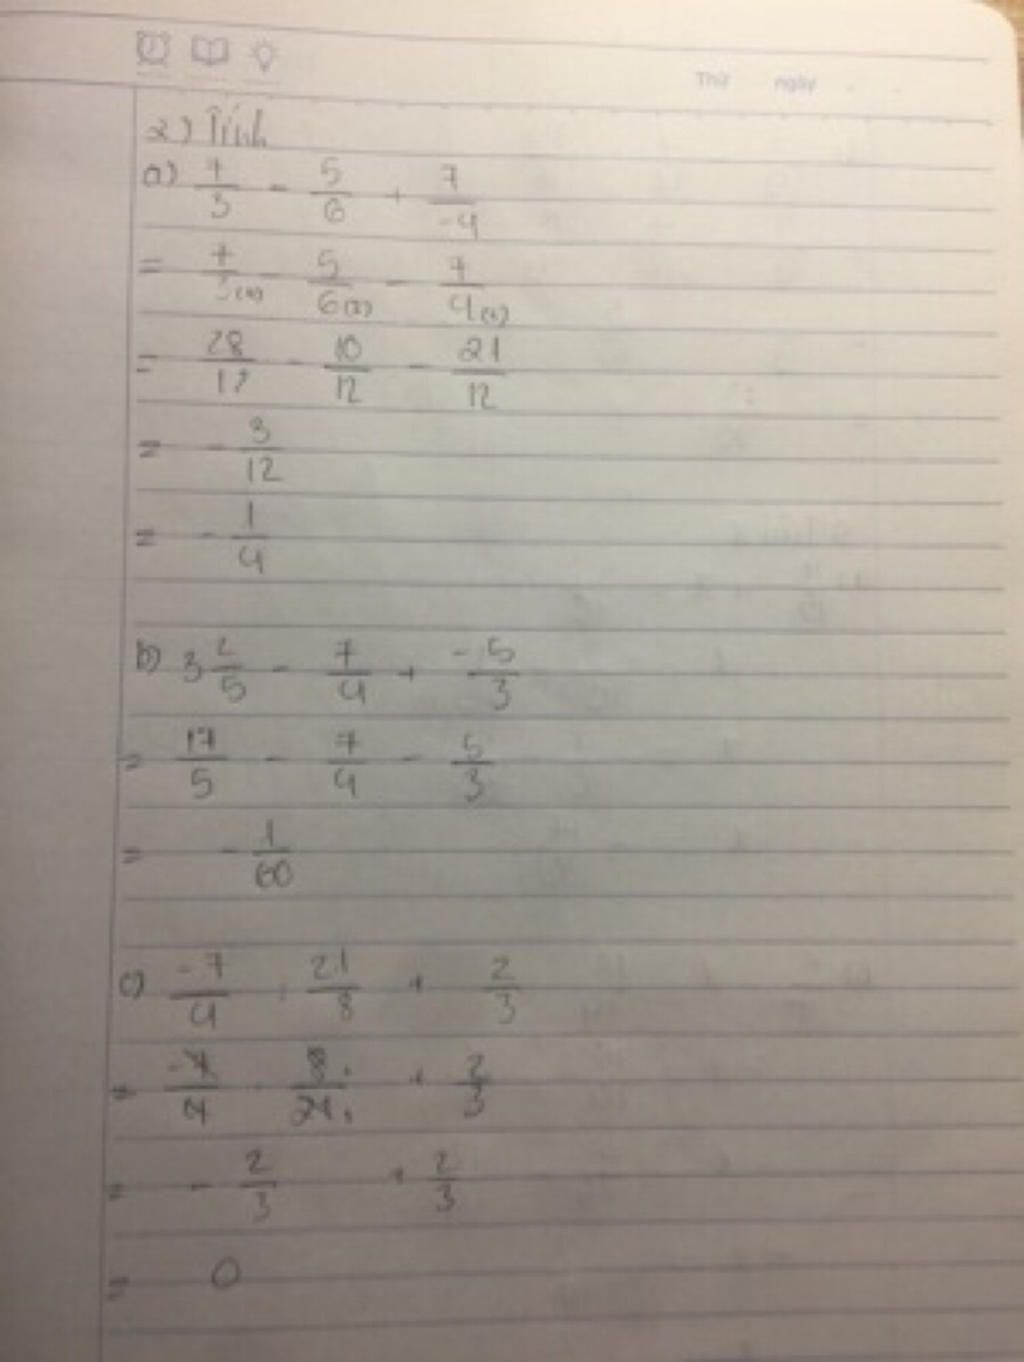 Thứ ngày
2) Tính
a) 7/3 - 5/6 + 7/-4
= 7/3(4) - 5/6(2) - 7/4(3)
= 28/12 - 10/12 - 21/12
= - 3/12
= - 1/4
b) 3 2/5 - 7/4 + -5/3
= 17/5 - 7/4 - 5/3
= - 1/60
c) -7/4 : 21/8 + 2/3
= -7/4 . 8/21 + 2/3
= - 2/3 + 2/3
= 0